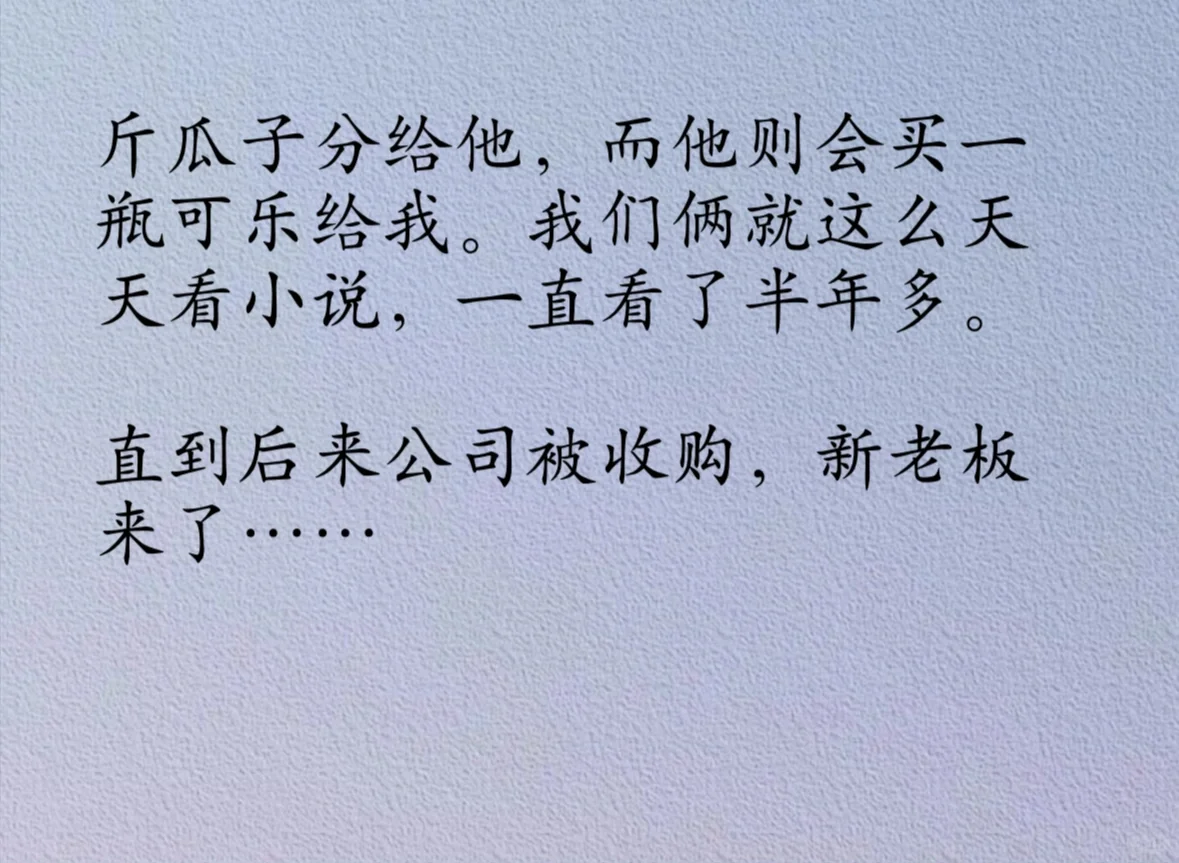 斤瓜子分给他，而他则会买一
瓶可乐给我。我们俩就这么天
天看小说，一直看了半年多。
直到后来公司被收购，新老板
来了……